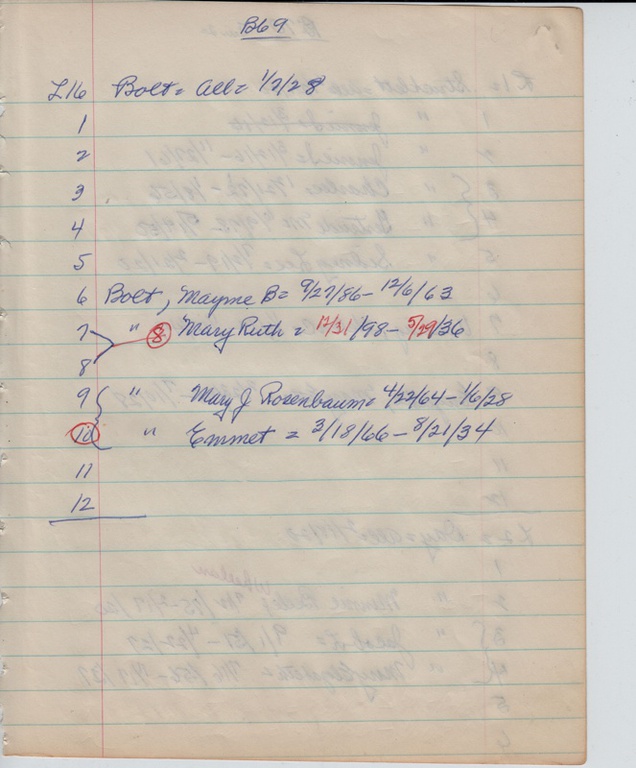 B69
L16 Bolt = all = 1/2/28
1
2
3
4
5
6 Bolt, Mayme B = 9/27/86 - 12/6/63
7 " 8 Mary Ruth = 12/31/98 - 5/29/36
8
9 " Mary J Rosenbaum = 4/22/64 - 1/6/28
10 " Emmet = 3/18/66 - 8/21/34
11
12